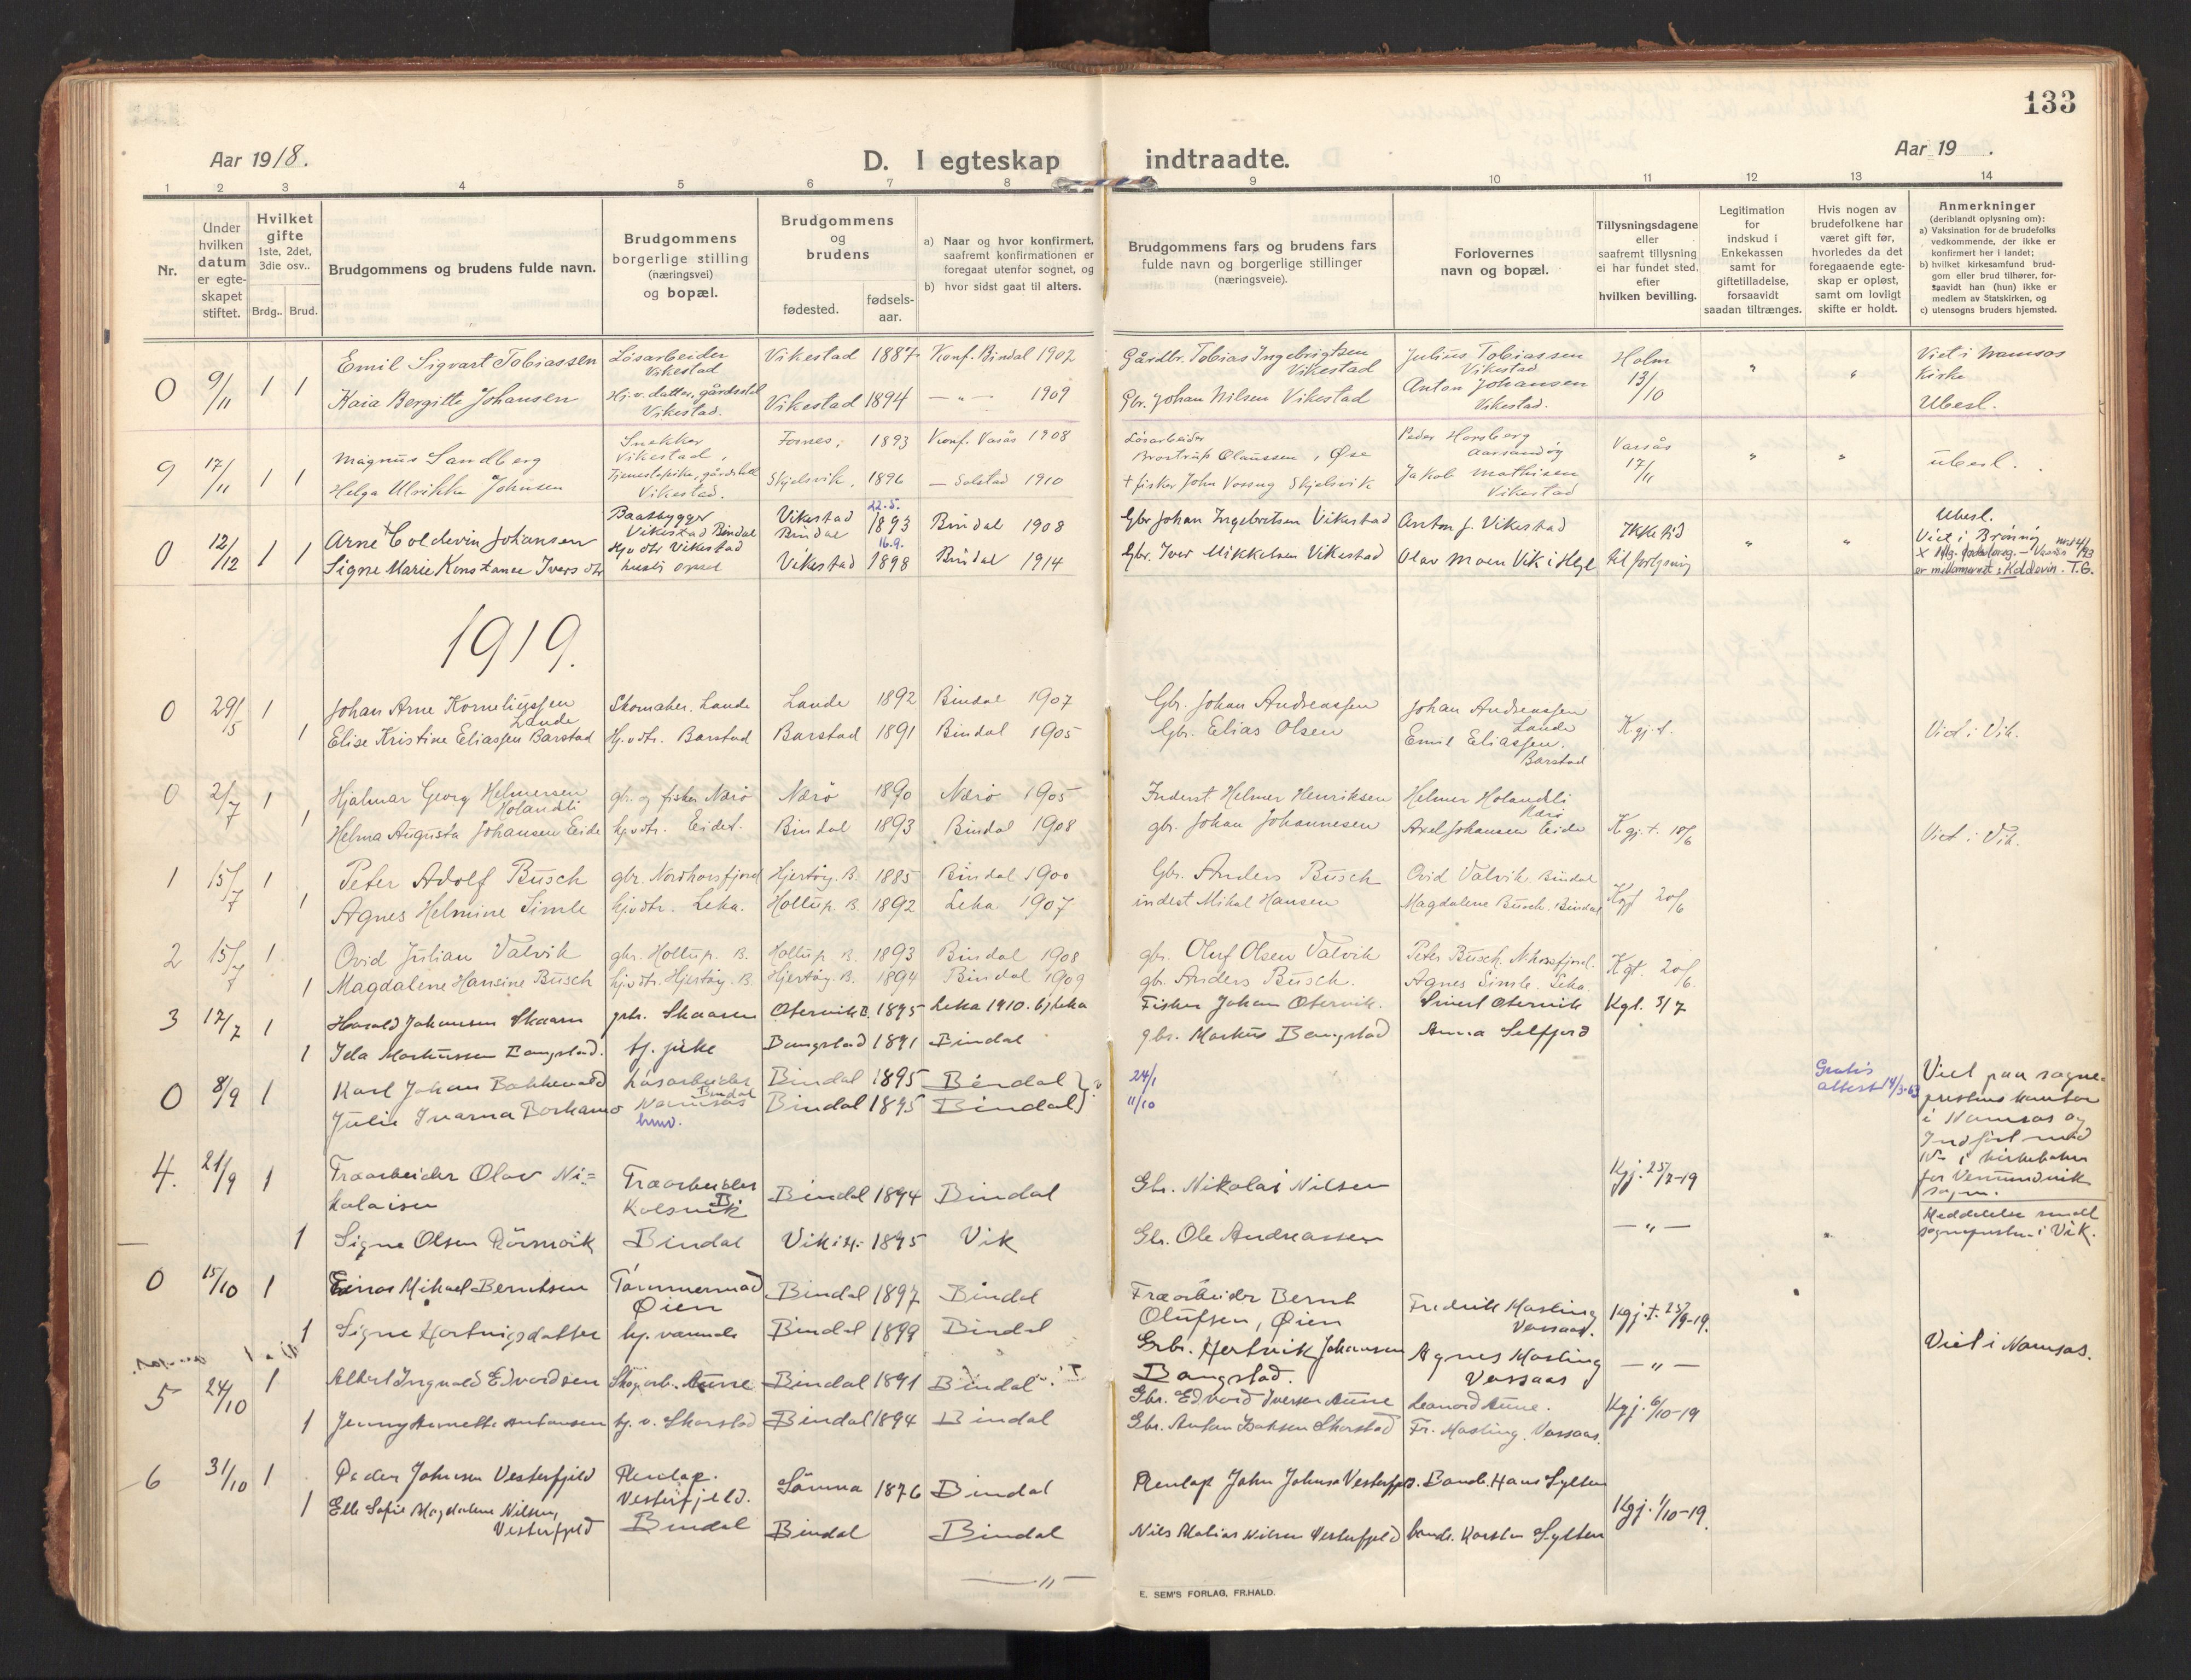 133
Aar 1918.
D. I egteskap indtraadte.
Aar 19 .
1 2 3 4 5 6 7 8 9 10 11 12 13 14
Nr.
Under hvilken datum er egte-skapet stiftet.
Hvilket gifte 1ste, 2det, 3die osv..
Brdg.. Brud.
Brudgommens og brudens fulde navn.
Brudgommens borgerlige stilling (næringsvei) og bopæl.
Brudgommens og brudens
fødested.
fødsels-aar.
a) Naar og hvor konfirmert, saafremt konfirmationen er foregaat utenfor sognet, og
b) hvor sidst gaat til alters.
Brudgommens fars og brudens fars fulde navn og borgerlige stillinger (næringsveie).
Forlovernes navn og bopæl.
Tillysningsdagene eller saafremt tillysning ei har fundet sted, efter hvilken bevilling.
Legitimation for indskud i Enkekassen samt for giftetilladelse, forsaavidt saadan tiltrænges.
Hvis nogen av brudefolkene har været gift før, hvorledes da det foregaaende egte-skap er opløst, samt om lovligt skifte er holdt.
Anmerkninger (deriblandt oplysning om):
a) Vaksination for de brudefolks vedkommende, der ikke er konfirmert her i landet;
b) hvilket kirkesamfund brud-gom eller brud tilhører, for-saavidt han (hun) ikke er medlem av Statskirken, og
c) utensogns bruders hjemsted.
0 9/11 1 1 Emil Sigvart Tobiassen Løsarbeider Vikestad Vikestad 1887 Konf. Bindal 1902 Gårdbr. Tobias Ingebrigtsen Vikestad Julius Tobiassen Vikestad Holm 13/10 " " Viet i Namsos Kirke
Kaia Bergitte Johansen Hj.v. datter, Vikestad. Vikestad 1894 — " — 1909 Gbr. Johan Nilsen Vikestad Anton Johansen Vikestad. Ubesl.
9 17/11 1 1 Magnus Sandberg Snekker Vikestad, Fornes, 1893 Konf. Vasås 1908 Løsarbeider Brostrup Olaussen, Øse Peder Horsberg Aarsandøy Vassås 17/11 " " ubesl.
Helga Ulrikke Johnsen Tjenestepike, Vikestad. Skjelsvik, 1896 — Solstad 1910 + fisker John Skjelsvik Jakob Mathisen Vikestad
0 12/12 1 1 Arne Coldevin Johansen Baatbygger Vikestad Bindal Vikestad Bindal 22.5. 1893 Bindal 1908 Gbr Johan Ingebretsen Vikestad Anton J. Vikestad Ikke tid til forlysning " " Ubesl. Viet i Brønnøy
Signe Marie Konstance Ivers dtr Hjv dtr Vikestad Vikestad 16.9. 1898 Bindal 1914 Gbr. Iver Mikkelsen Vikestad Olav Moen Vik i Hlgl
Koldevin. T.G.
1919.
0 29/5 1 Johan Arne Korneliussen Lande Skomaker. Lande Lande 1892 Bindal 1907 Gbr. Johan Andreassen Johan Andreassen Lande K.gj.t. Viet i Vik.
1 Elise Kristine Eliassen Barstad Hj.v dtr. Barstad Barstad 1891 Bindal 1905 Gbr. Elias Olsen Emil Eliassen. Barstad
0 2/7 1 Hjalmar Georg Helmersen Holandli gbr. og fisker Nærø Nærø 1890 Nærø 1905 Inderst Helmer Henriksen Helmer Holandli Nærø K.gj.t. 18/6 Viet i Vik.
1 Helma Augusta Johansen Eide hj.v dtr. Eidet. Bindal 1893 Bindal 1908 gbr. Johan Johannesen Axel Johansen Eide
1 15/7 1 Peter Adolf Busch gbr. Nordhorsfjord Hjertøy. B. 1885 Bindal 1900 Gbr. Anders Busch Ovid Valvik Bindal Kgt 20/6
1 Agnes Helmine Simle hjv dtr. Leka. Holtup. B. 1892 Leka 1907 inderst Mikal Hansen Magdalene Busch. Bindal
2 15/7 1 Ovid Julian Valvik gbr. Holtup. B. Holtup B. 1893 Bindal 1908 gbr. Oluf Olsen Valvik Peter Busch. N.horsfjord. Kgt. 20/6
1 Magdalene Hansine Busch hjv dtr. Hjertøy. B. Hjertøy. B. 1894 Bindal 1909 gbr. Anders Busch. Agnes Simle. Leka.
3 17/7 1 Harald Johansen Skaaren gbr. Skaaren Otervik B. 1895 Leka 1910. Fisker Johan Otervik. Sivert Otervik Kgt. 3/7
1 Ida Markussen Bangstad. hj. pike Bangstad 1891 Bindal gbr. Markus Bangstad Anna Selfjord
0 8/9 1 Karl Johan Bakkevold Løsarbeider Bindal Namsos Bindal 1895 Bindal 24/1 Gratis attest 14/3-63 Viet paa sogneprestens kontor i Namsos og Indført med i kirkeboken for Vemundvik sogn.
Julie Ivarna Borkamo hmd. Bindal 1895 Bindal 11/10
4. 21/9 1 Træarbeider Olav Ni=kolaisen Træarbeider Kolsvik Bi Bindal 1894 Bindal Gbr. Nikolai Nilsen Kgj. 25/7-19
1 Signe Olsen Rörmoik Bindal Vik i H. 1895 Vik Gbr. Ole Andreassen — " — Meddelelse sendt sognepresten i Vik.
0 15/10 1 Einar Mikael Berntsen Tømmermand Øien Bindal 1897 Bindal Træarbeider Bernt Olufsen, Øien Fredrik Kasting Vassaas. Kgj.t. 25/9-19.
1 Signe Hartvigsdatter hj. værende Bindal 1899 Bindal Grbr. Hertvik Johansen Bangstad. Agnes Kosting Vassaas — " — Viet i Namsos.
5 24/10 1 Albert Ingvald Edvardsen Skogarb. Aune Bindal 1891 Bindal Gbr. Edvard Iversen Aune Leonard Aune. Kgj. 6/10-19
1 Jenny Annette Antonsen hj. v. Skarstad Bindal 1894 Bindal Gbr. Anton Isaksen Skarstad Fr. Masling, Vassaas.
6 31/10 1 Peder Johnsen Vesterfjeld Flerlap. Vesterfjeld. Bindal Sömna 1876 Bindal John Johnsen Vesterfjeld. Hans Sylten Kgj. 1/10-19.
1 Elle Sofie Magdalene Nilsen, Vesterfjeld Bindal Bindal Nils Matias Nilsen Vesterfjeld Karsten Sylten
— " —
E. SEM'S FORLAG, FR.HALD.